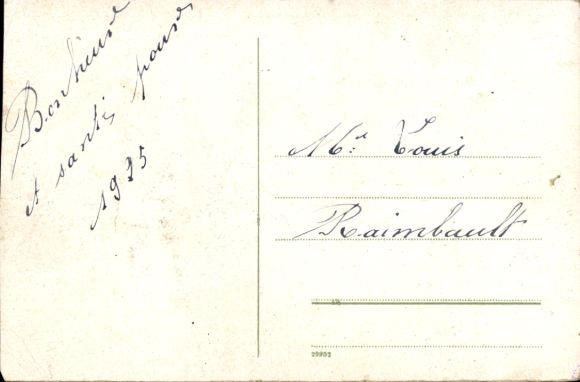 Bonheur
et santé pour
1935
Mr. Louis
Raimbault
29952